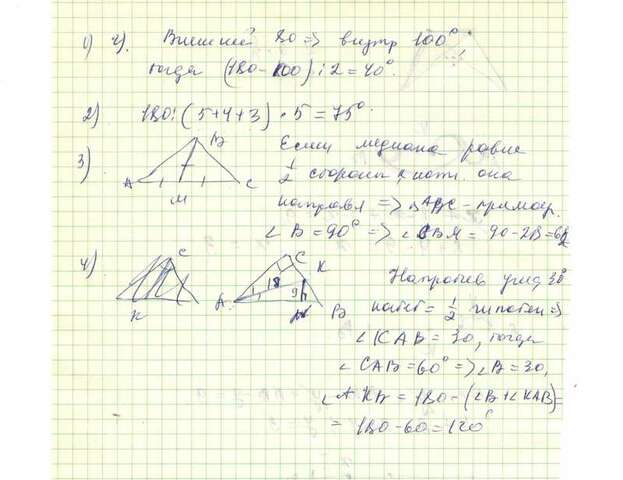 1) 2). Внешний 80 => внутр 100°
тогда (180-100):2=40°.
2) 180:(5+4+3)·5=75°
3) B Если медиана равна
A M C 1/2 стороны к кот. она
направл => △ABC - прямоуг.
∠B=90° => ∠CBM = 90-28=62
4) C K C K Напротив угла 30°
A 1 18 9 B катет = 1/2 гипотен =>
∠KAB=30, тогда
∠CAB=60° => ∠B=30,
∠AKB = 180-(∠B+∠KAB)=
= 180-60=120°